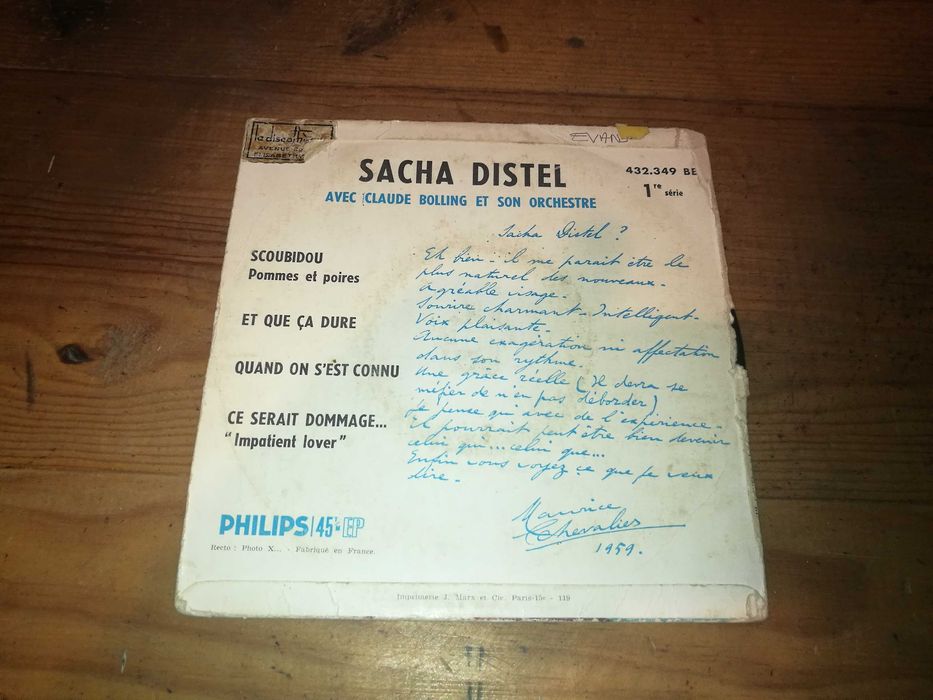 le discothè
AVENUE DU
EVIAN
SACHA DISTEL
432.349 BE
1re série
AVEC CLAUDE BOLLING ET SON ORCHESTRE
SCOUBIDOU
Pommes et poires
ET QUE ÇA DURE
QUAND ON S'EST CONNU
CE SERAIT DOMMAGE...
"Impatient lover"
Sacha Distel ?
Eh bien - il me parait être le
plus naturel des nouveaux -
Agréable visage -
Sourire charmant - Intelligent -
Voix plaisante -
Aucune exagération ni affectation
dans son rythme.
Une grâce réelle (Il devra se
méfier de n'en pas déborder)
Je pense qu'avec de l'expérience -
Il pourrait peut être bien devenir
celui qui... celui que...
Enfin vous voyez ce que je veux
dire -
Maurice
Chevalier
1959.
PHILIPS 45t EP
Recto : Photo X... - Fabriqué en France.
Imprimerie J. Marx et Cie. Paris-15e - 119